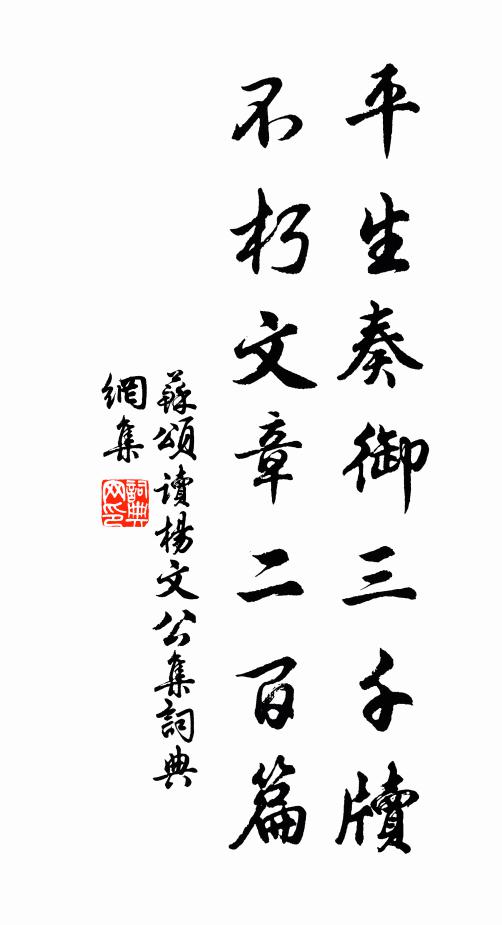 平生奏御三千牘
不朽文章二百篇
蘇頌讀楊文公集詞典
網集
詞典
網印